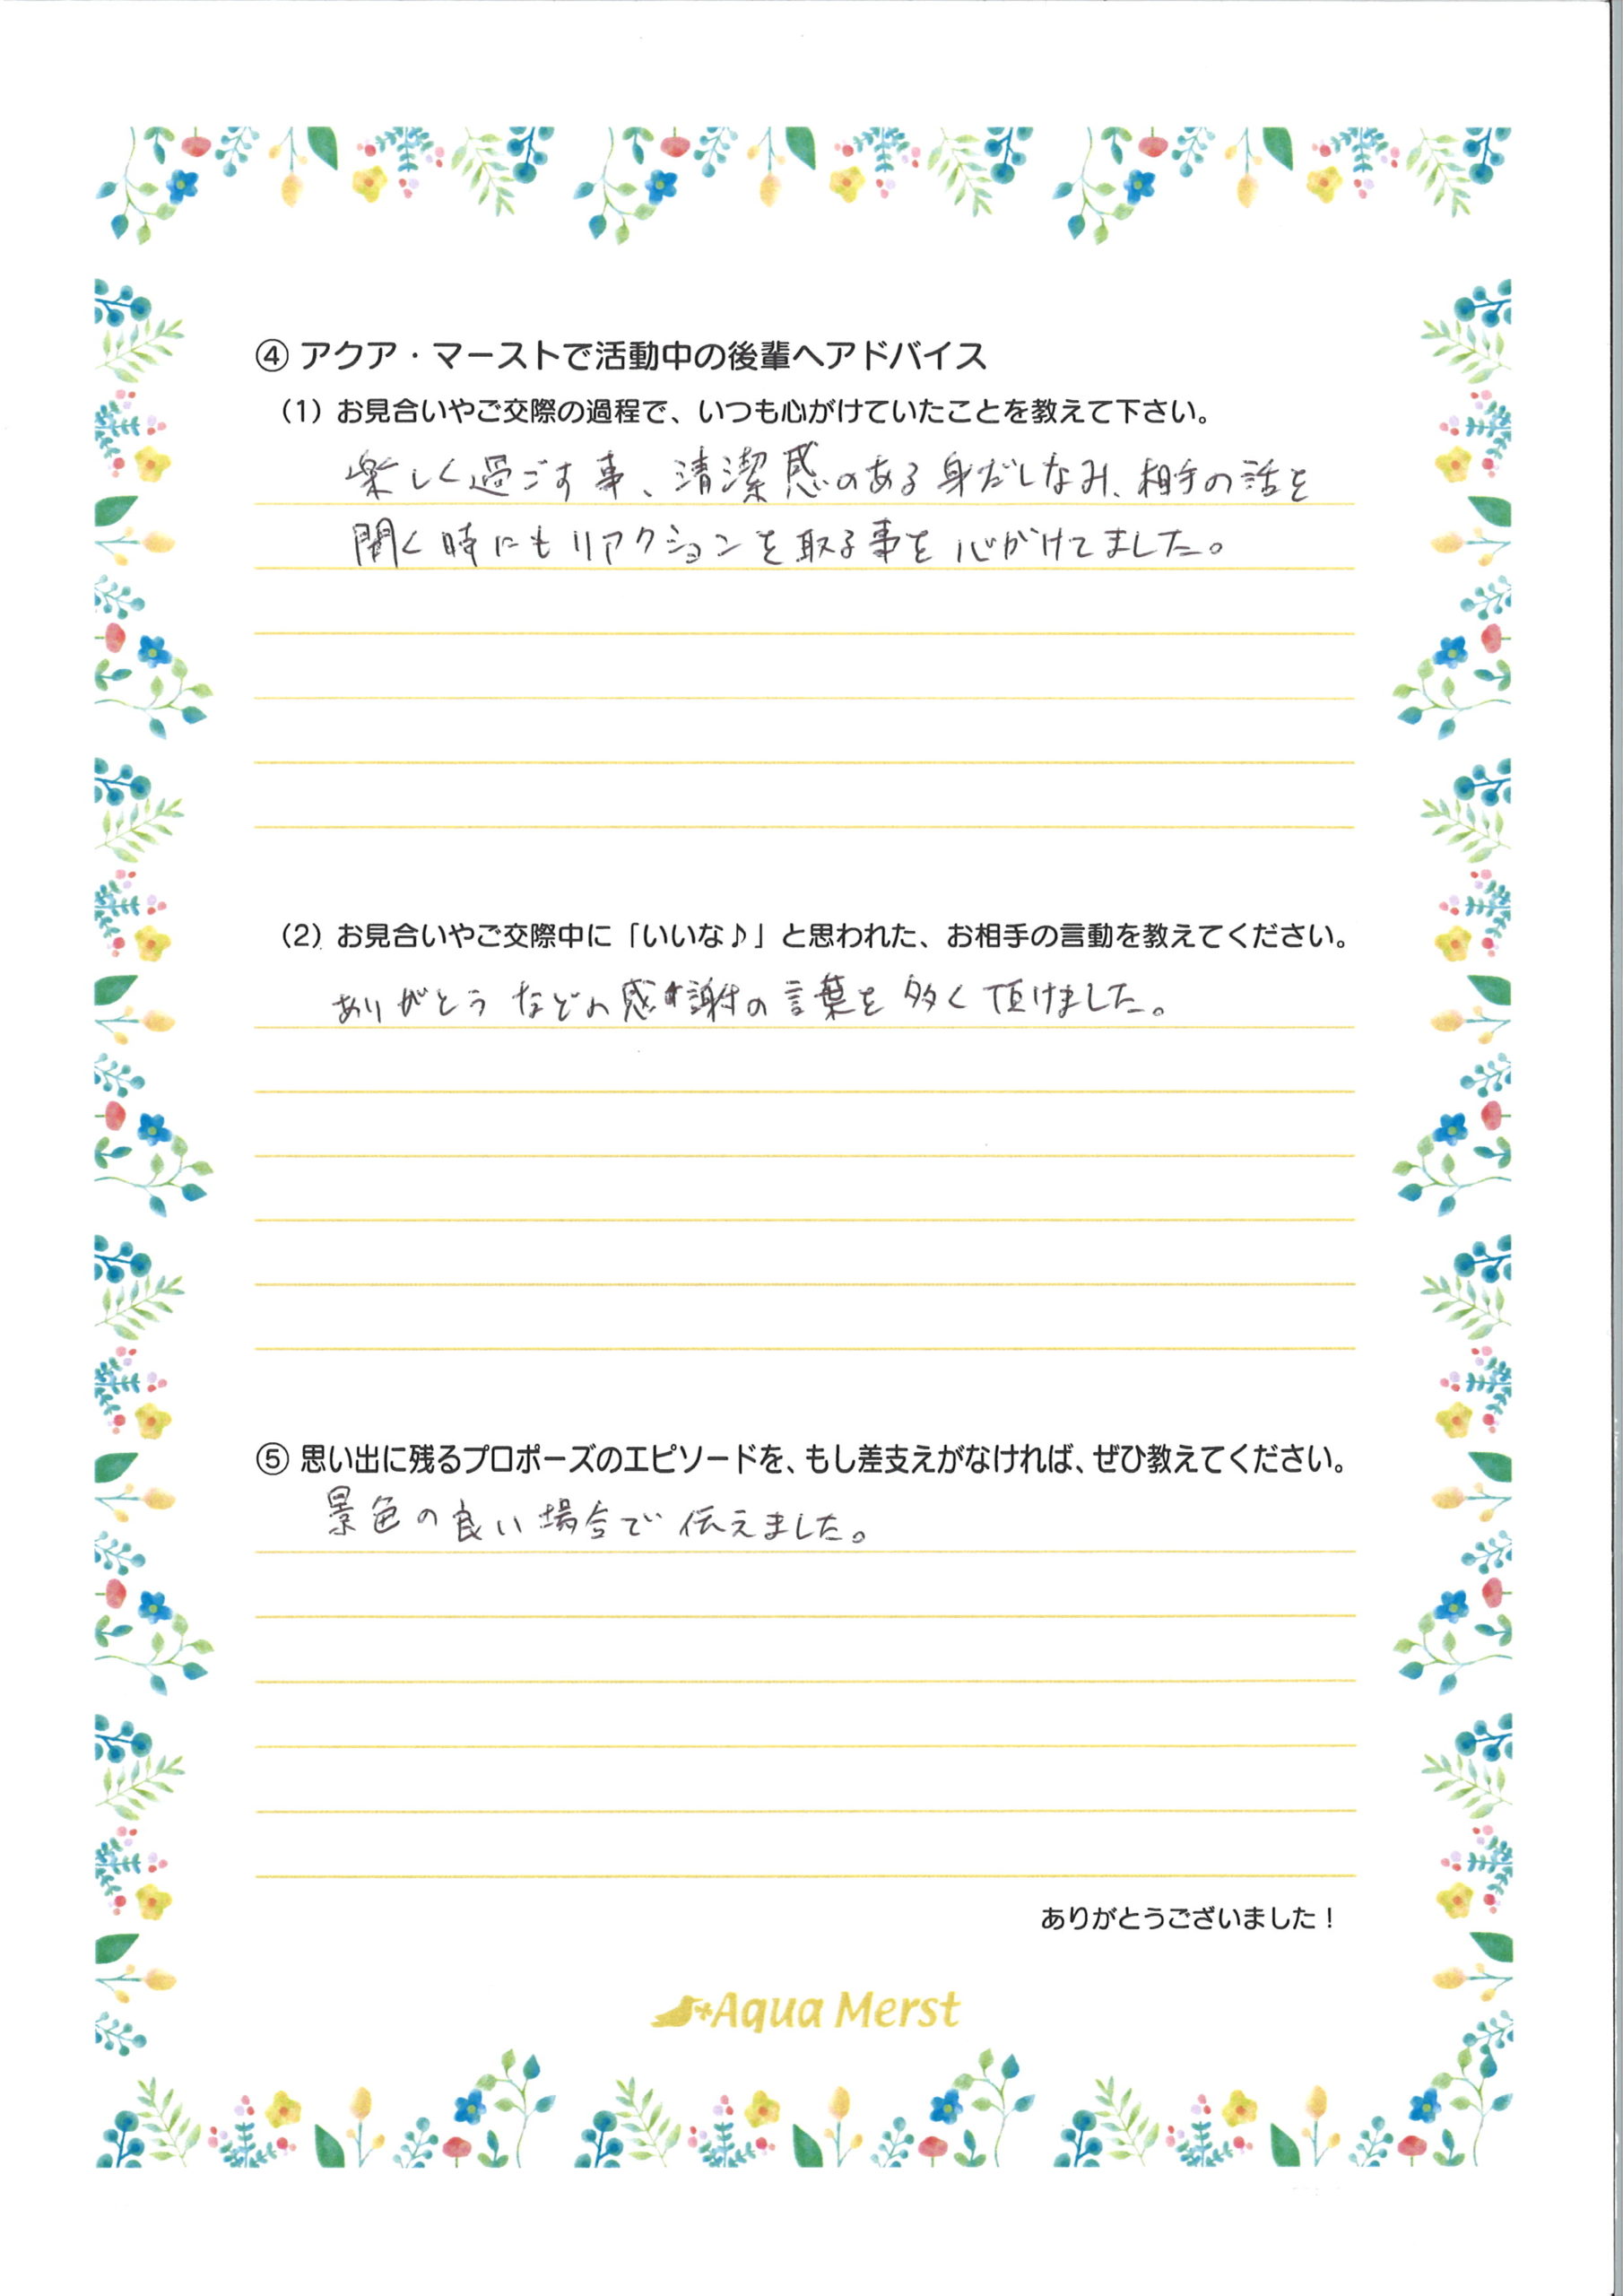 ④ アクア・マーストで活動中の後輩へアドバイス
（1）お見合いやご交際の過程で、いつも心がけていたことを教えて下さい。
楽しく過ごす事、清潔感のある身だしなみ、相手の話を
聞く時にもリアクションを取る事を心がけてました。
（2）お見合いやご交際中に「いいな♪」と思われた、お相手の言動を教えてください。
ありがとうなどの感謝の言葉を多く頂けました。
⑤ 思い出に残るプロポーズのエピソードを、もし差支えがなければ、ぜひ教えてください。
景色の良い場合で伝えました。
ありがとうございました！
Aqua Merst